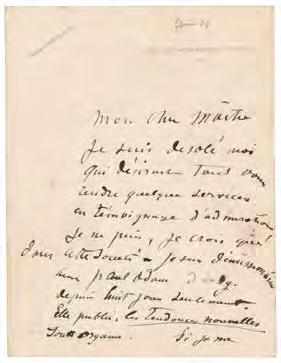 Mon cher Maître
Je suis desolé moi
qui désirant tant vous
rendre quelques services
en témoignage d'admiration
Je ne puis, je crois que!
dans cette Société - je suis démissionnaire
avec paul adam
depuis huit jours seulement.
Elle publie, les Tendances nouvelles
Son organe. Si je me